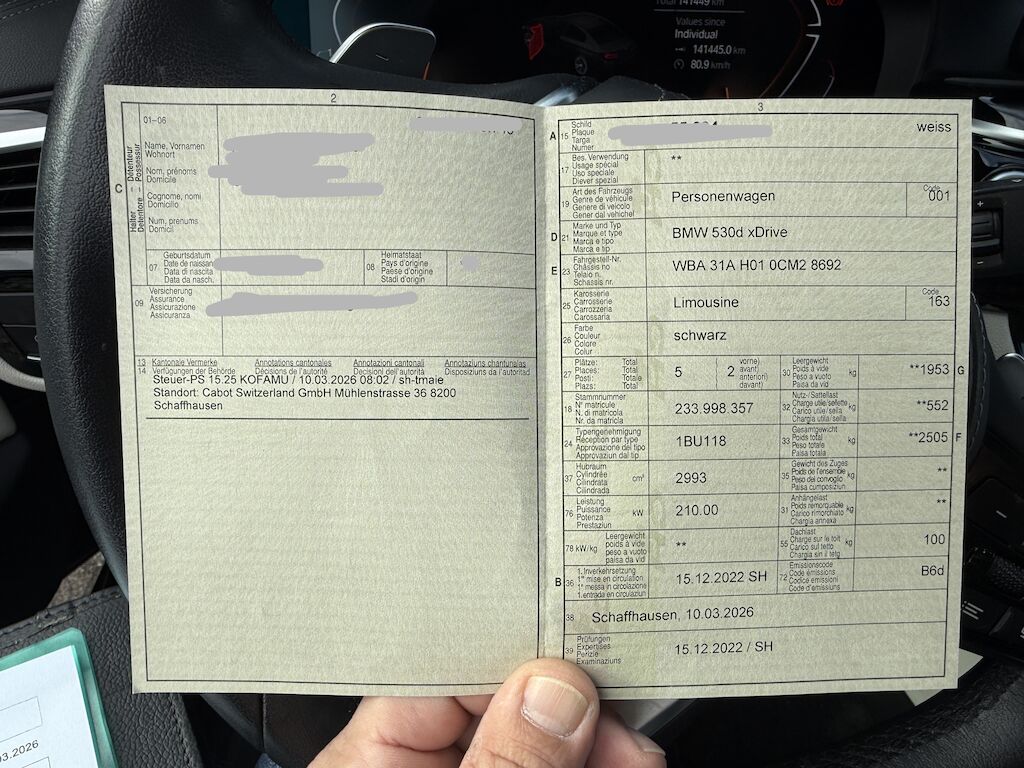 Total 141449 km
Values since
Individual
141445.0 km
80.9 km/h
2
01-06
Name, Vornamen
Wohnort
Nom, prénoms
Domicile
Cognome, nomi
Domicilio
Num, prenums
Domicil
C
Halter Détenteur
Detentore Possessur
07
Geburtsdatum
Date de naissance
Data di nascita
Data da nasch.
08
Heimatstaat
Pays d'origine
Paese d'origine
Stadi d'origin
09
Versicherung
Assurance
Assicurazione
Assicuranza
13
14
Kantonale Vermerke Annotations cantonales Annotazioni cantonali Annotaziuns chantunalas
Verfügungen der Behörde Décisions de l'autorité Decisioni dell'autorità Disposiziuns da l'autoritad
Steuer-PS 15.25 KOFAMU / 10.03.2026 08:02 / sh-tmaie
Standort: Cabot Switzerland GmbH Mühlenstrasse 36 8200
Schaffhausen
3
A 15
Schild
Plaque
Targa
Numer
weiss
17
Bes. Verwendung
Usage spécial
Uso speciale
Diever spezial
**
19
Art des Fahrzeugs
Genre de véhicule
Genere di veicolo
Gener dal vehichel
Personenwagen
Code
001
D 21
Marke und Typ
Marque et type
Marca e tipo
Marca e tip
BMW 530d xDrive
E 23
Fahrgestell-Nr.
Châssis no
Telaio n.
Schassis nr.
WBA 31A H01 0CM2 8692
25
Karosserie
Carrosserie
Carrozzeria
Carossaria
Limousine
Code
163
26
Farbe
Couleur
Colore
Colur
schwarz
27
Plätze: Total
Places: Total
Posti: Totale
Plazs: Total
5
( vorne)
avant)
anteriori)
davant)
2
30
Leergewicht
Poids à vide
Peso a vuoto
Paisa da vid
kg
**1953
G
18
Stammnummer
N° matricule
N. di matricola
Nr. da matricla
233.998.357
32
Nutz-/Sattellast
Charge utile/sellette
Carico utile/sella
Chargia utila/sella
kg
**552
24
Typengenehmigung
Réception par type
Approvazione del tipo
Approvaziun dal tip
1BU118
33
Gesamtgewicht
Poids total
Peso totale
Paisa totala
kg
**2505
F
37
Hubraum
Cylindrée
Cilindrata
Cilindrada
cm³
2993
35
Gewicht des Zuges
Poids de l'ensemble
Peso del convoglio
Paisa cumposiziun
kg
**
76
Leistung
Puissance
Potenza
Prestaziun
kW
210.00
31
Anhängelast
Poids remorquable
Carico rimorchiato
Chargia annexa
kg
**
78 kW/kg
Leergewicht
poids à vide
peso a vuoto
paisa da vid
**
55
Dachlast
Charge sur le toit
Carico sul tetto
Chargia sin il tetg
kg
100
B 36
1. Inverkehrsetzung
1re mise en circulation
1a messa in circolazione
1. entrada en circulaziun
15.12.2022 SH
72
Emissionscode
Code émissions
Codice emissioni
Code d'emissiuns
B6d
38
Schaffhausen, 10.03.2026
39
Prüfungen
Expertises
Perizie
Examinaziuns
15.12.2022 / SH
03.2026